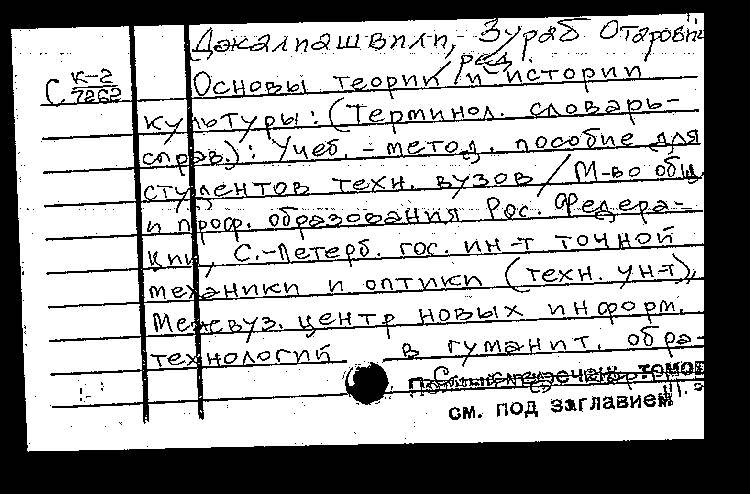 Джалпашвили, Зураб Отарови
ред.
С К-2
7262
Основы теории и истории
культуры: (Терминол. словарь-
справ.): Учеб.-метод. пособие для
студентов техн. вузов / М-во общ.
и проф. образования Рос. Федера-
ции, С.-Петерб. гос. ин-т точной
механики и оптики (техн. ун-т),
Межвуз. центр новых информ.
технологий в гуманит. обра-
томов
см. под заглавием